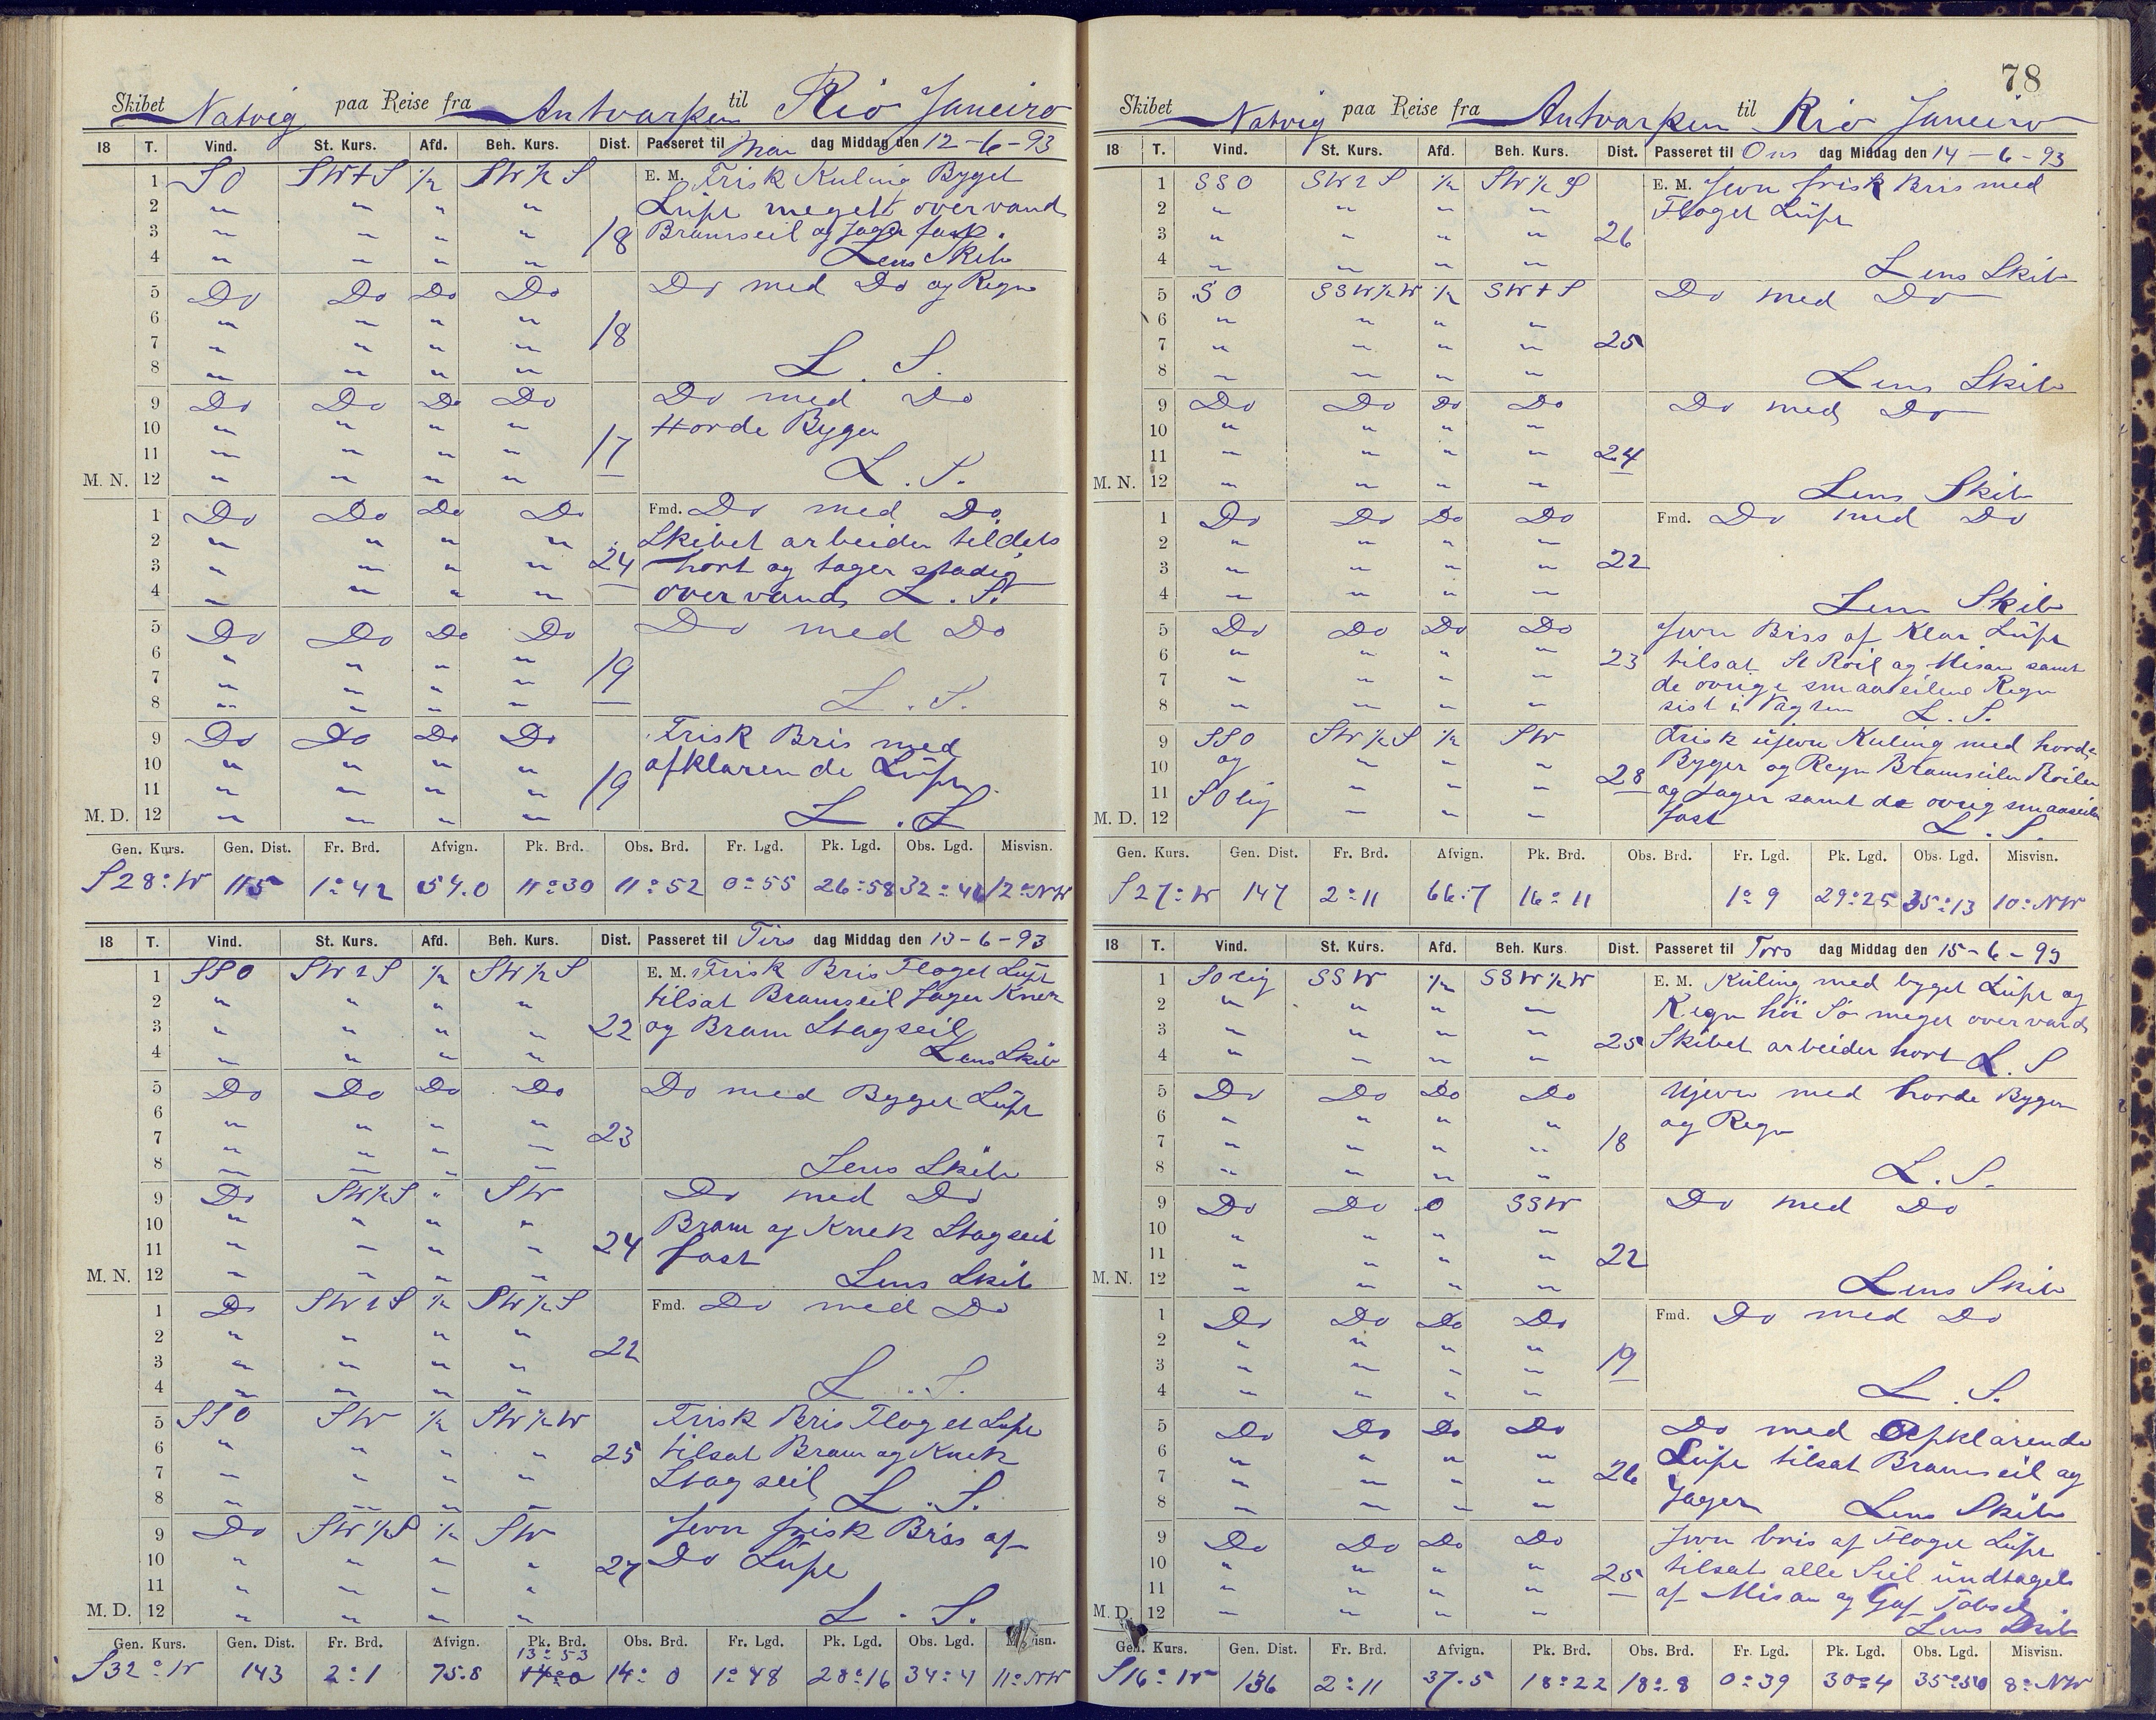 Skibet Natvig paa Reise fra Antvarpen til Rio Janeiro
18 T. Vind. St. Kurs. Afd. Beh. Kurs. Dist. Passeret til Man dag Middag den 12-6-93
1 SO SWtS ½ SW½S E. M. Frisk Kuling Byget
2 " " " " Luft meget overvand
3 " " " " 18 Bramseil og Jager fast.
4 " " " " Lens Skib
5 Do Do Do Do Do med Do og Regn
6 " " " "
7 " " " " 18
8 " " " " L. S.
9 Do Do Do Do Do med Do
10 " " " " Horde Byger
11 " " " " 17
M. N. 12 " " " " L. S.
1 Do Do Do Do Fmd. Do med Do
2 " " " " Skibet arbeider tildels
3 " " " " 24 hort og tager stadig
4 " " " " overvand L. S.
5 Do Do Do Do Do med Do
6 " " " "
7 " " " " 19
8 " " " " L. S.
9 Do Do Do Do Frisk Bris med
10 " " " " afklarende Luft
11 " " " " 19
M. D. 12 " " " " L. S.
Gen. Kurs. Gen. Dist. Fr. Brd. Afvign. Pk. Brd. Obs. Brd. Fr. Lgd. Pk. Lgd. Obs. Lgd. Misvisn.
S28°W 115 1°42 54.0 11°30 11°52 0°55 26°58 32°46 12°NW
18 T. Vind. St. Kurs. Afd. Beh. Kurs. Dist. Passeret til Tirs dag Middag den 13-6-93
1 SSO SWtS ½ SW½S E. M. Frisk Bris Floget Luft
2 " " " " tilsat Bramseil Jager Knek
3 " " " " 22 og Bram Stagseil
4 " " " " Lens Skib
5 Do Do Do Do Do med Byget Luft
6 " " " "
7 " " " " 23
8 " " " " Lens Skib
9 Do SW½S " SW Do med Do
10 " " " " Bram og Knek Stagseil
11 " " " " 24 fast
M. N. 12 " " " " Lens Skib
1 Do SWtS ½ SW½S Fmd. Do med Do
2 " " " "
3 " " " " 22
4 " " " " L. S.
5 SSO SW ½ SW½W Frisk Bris Floget Luft
6 " " " " 25 tilsat Bram og Knek
7 " " " " Stagseil L. S.
8 " " " "
9 Do SW½S ½ SW Jevn frisk Bris af
10 " " " " 27 Do Luft
11 " " " "
M. D. 12 " " " " L. S.
Gen. Kurs. Gen. Dist. Fr. Brd. Afvign. Pk. Brd. Obs. Brd. Fr. Lgd. Pk. Lgd. Obs. Lgd. Misvisn.
13°53
S32°W 143 2°1 75.8 14°0 14°0 1°48 28°16 34°4 11°NW
78
Skibet Natvig paa Reise fra Antvarpen til Rio Janeiro
18 T. Vind. St. Kurs. Afd. Beh. Kurs. Dist. Passeret til Ons dag Middag den 14-6-93
1 SSO SWtS ½ SW½S E. M. Jevn frisk Bris med
2 " " " " Floget Luft
3 " " " " 26
4 " " " " Lens Skib
5 SO SSW½W ½ SWtS Do med Do
6 " " " "
7 " " " " 25
8 " " " " Lens Skib
9 Do Do Do Do Do med Do
10 " " " "
11 " " " " 24
M. N. 12 " " " " Lens Skib
1 Do Do Do Do Fmd. Do med Do
2 " " " " 22
3 " " " "
4 " " " " Lens Skib
5 Do Do Do Do Jevn Bris af Klar Luft
6 " " " " 23 tilsat St Roil og Misan samt
7 " " " " de ovrige smaaseilene Regn
8 " " " " sist i Vagten L. S.
9 SSO SW½S ½ SW Frisk ujevn Kuling med horde
10 og " " " 28 Byger og Regn Bramseilen Roilen
11 SOlig " " " og Jager samt de ovrig smaaseilen
M. D. 12 " " " fast L. S.
Gen. Kurs. Gen. Dist. Fr. Brd. Afvign. Pk. Brd. Obs. Brd. Fr. Lgd. Pk. Lgd. Obs. Lgd. Misvisn.
S27°W 147 2°11 66.7 16°11 1°9 29°25 35°13 10°NW
18 T. Vind. St. Kurs. Afd. Beh. Kurs Dist. Passeret til Tors dag Middag den 15-6-93
1 SOlig SSW ½ SSW½W E. M. Kuling med byget Luft og
2 " " " " Regn hoi So meget overvand
3 " " " " 25 Skibet arbeider hort L. S
4 " " " "
5 Do Do Do Do Ujevn med horde Byger
6 " " " " og Regn
7 " " " " 18
8 " " " " L. S.
9 Do Do 0 SSW Do med Do
10 " " " "
11 " " " " 22
M. N. 12 " " " " Lens Skib
1 Do Do Do Do Fmd. Do med Do
2 " " " "
3 " " " " 19
4 " " " " L. S.
5 Do Do Do Do Do med Opklarende
6 " " " " Luft tilsat Bramseil og
7 " " " " 26 Jager Lens Skib
8 " " " "
9 Do Do Do Do Jevn bris af Floget Luft
10 " " " " 25 tilsat alle Seil undtagels
11 " " " " af Misan og Gaf Tobseil
M. D. 12 " " " " Lens Skib
Gen. Kurs. Gen. Dist. Fr. Brd. Afvign. Pk. Brd. Obs. Brd. Fr. Lgd. Pk. Lgd. Obs. Lgd. Misvisn.
S16°W 136 2°11 37.5 18°22 18°8 0°39 30°4 35°50 8°NW